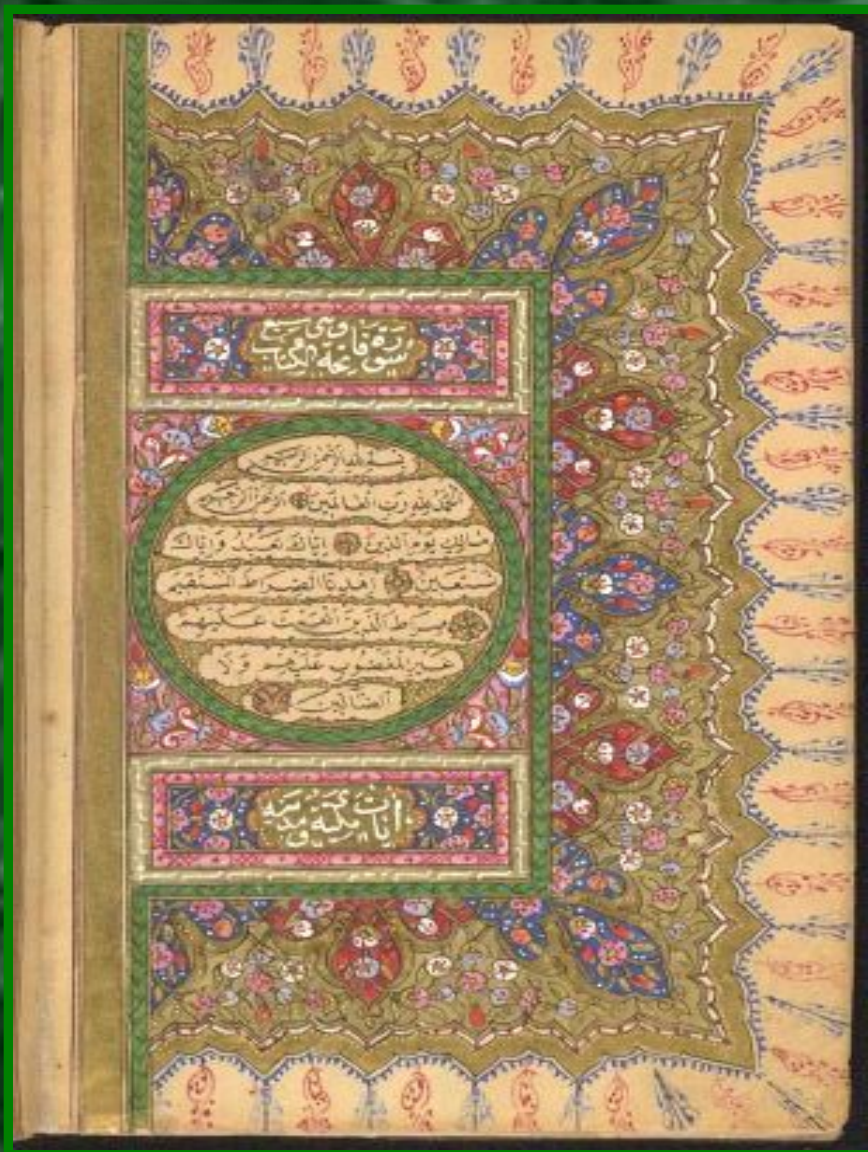 سورة فاتحة الكتاب وهي سبع
بسم الله الرحمن الرحيم
الحمد لله رب العالمين الرحمن الرحيم
مالك يوم الدين إياك نعبد وإياك
نستعين اهدنا الصراط المستقيم
صراط الذين أنعمت عليهم
غير المغضوب عليهم ولا
الضالين
آيات مكية